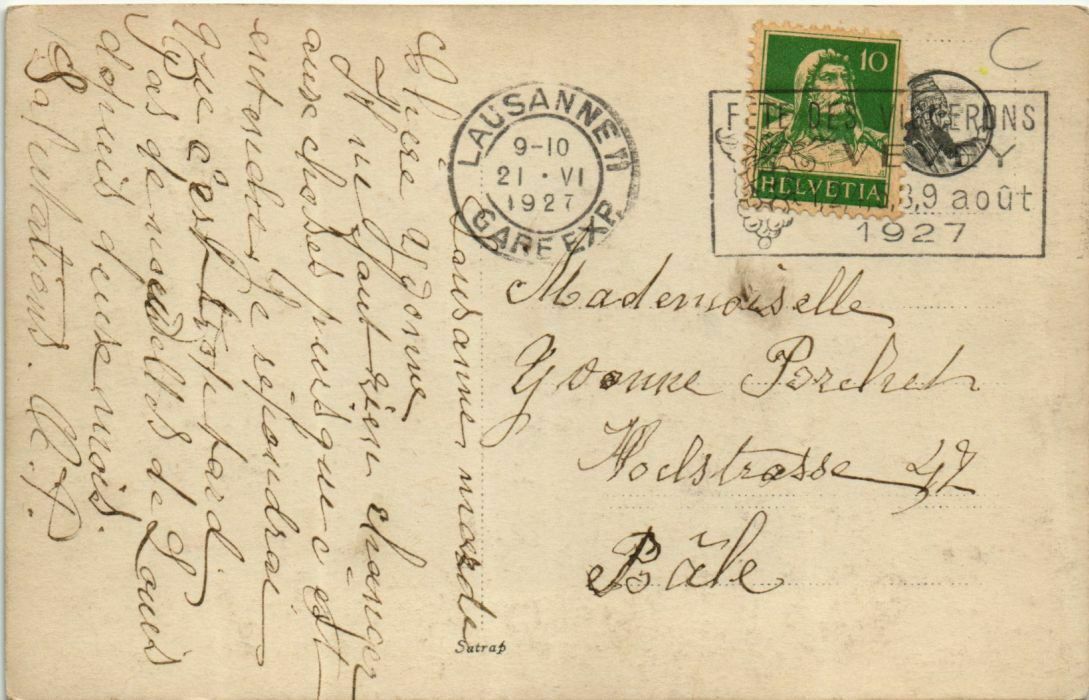 LAUSANNE
9-10
21 · VI
1927
GARE EXP.
10
HELVETIA
FÊTE DES VIGNERONS
VEVEY
8,9 août
1927
C
Mademoiselle
Yvonne Porchet
47
Bâle
Lausanne mardi
Chère Yvonne
Il ne faut rien changer
aux choses puisque c'est
entendu. Je répondrai
que c'est trop tard
Pas de nouvelles de Louis
depuis deux mois.
Salutations.
Satrap